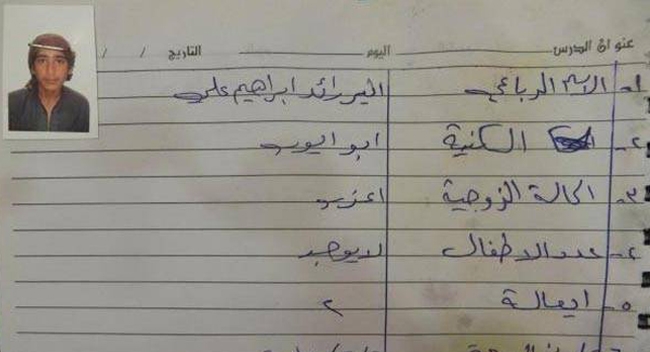 عنوان الدرس اليوم التاريخ / /
١- الاسم الرباعي البير رائد ابراهيم علي
٢- الكنية ابو ايوب
٣- الحالة الزوجية اعزب
٤- عدد الاطفال لا يوجد
٥- ايعالة ٢